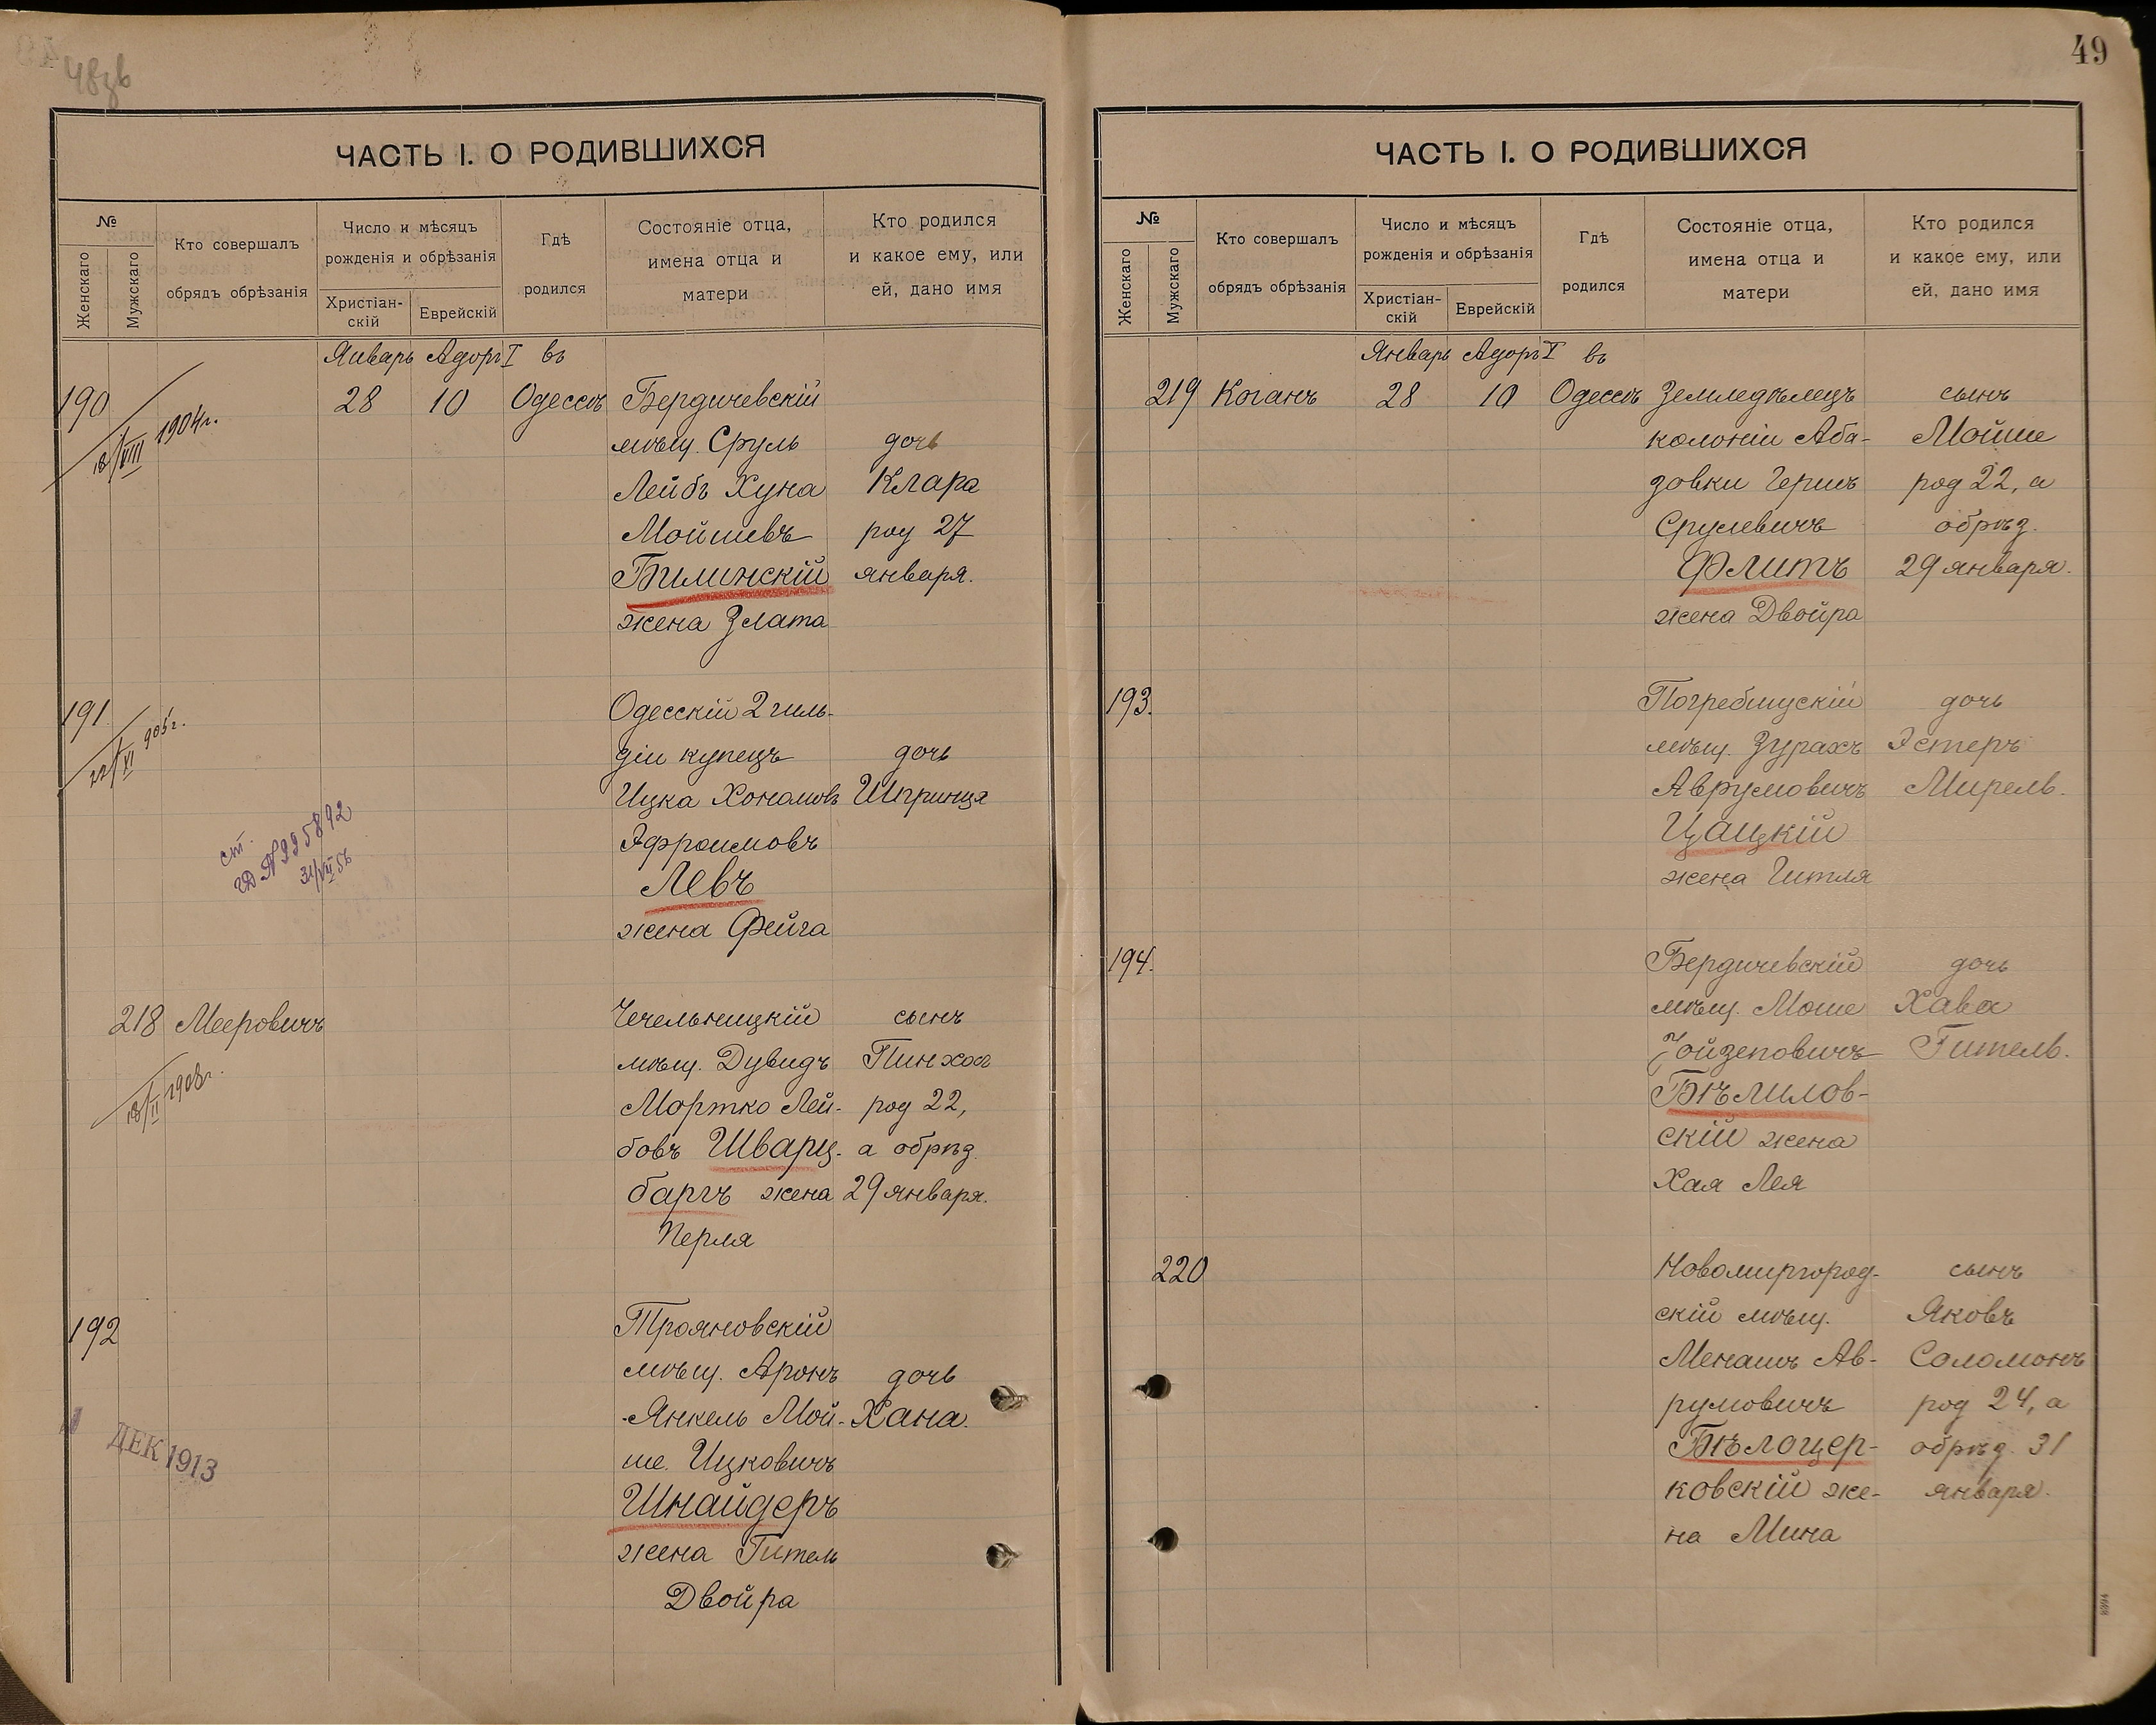 48зв
ЧАСТЬ I. О РОДИВШИХСЯ
№
Женскаго
Мужскаго
Кто совершалъ
обрядъ обрѣзанія
Число и мѣсяцъ
рожденія и обрѣзанія
Христіан-
скій
Еврейскій
Гдѣ
родился
Состояніе отца,
имена отца и
матери
Кто родился
и какое ему, или
ей, дано имя
Январь Адоръ I въ
190 28 10 Одессѣ Бердичевскій
18/VIII 1904г.
мѣщ. Сруль дочь
Лейбъ Хуна Клара
Мойшевъ род 27
Билинскій января.
жена Злата
191 Одесскій 2 гиль-
22/VI 905г.
діи купецъ дочь
Ицка Хономовъ Шпринця
Эфроимовъ
Левъ
жена Фейга
ст.
ГД №225892
31/VII 56
218 Мееровичъ Чечельницкій сынъ
18/II 1908г.
мѣщ. Дувидъ Пинхос
Мортко Лей- род 22,
бовъ Шварц- а обрѣз.
баргъ жена 29 января.
Перля
192 Трояновскій
мѣщ. Аронъ дочь
Янкель Мой- Хана.
ше Ицковичъ
Шнайдеръ
жена Гитель
Двойра
ДЕК 1913
49
ЧАСТЬ I. О РОДИВШИХСЯ
№
Женскаго
Мужскаго
Кто совершалъ
обрядъ обрѣзанія
Число и мѣсяцъ
рожденія и обрѣзанія
Христіан-
скій
Еврейскій
Гдѣ
родился
Состояніе отца,
имена отца и
матери
Кто родился
и какое ему, или
ей, дано имя
Январь Адоръ I въ
219 Коганъ 28 10 Одессѣ Земледѣлецъ сынъ
колоніи Аба- Мойше
зовки Гершъ род 22, а
Срулевичъ обрѣз.
Флитъ 29 января.
жена Двойра
193. Погребищскій дочь
мѣщ. Зурахъ Эстеръ
Аврумовичъ Мирель.
Цацкій
жена Гитля
194. Бердичевскій дочь
мѣщ. Моше Хава
Іойзеповичъ Гитель.
Бѣлилов-
скій жена
Хая Лея
220 Новомиргород- сынъ
скій мѣщ. Яковъ
Менашъ Ав- Соломонъ
румовичъ род 24, а
Бѣлоцер- обрѣз. 31
ковскій же- января.
на Мина